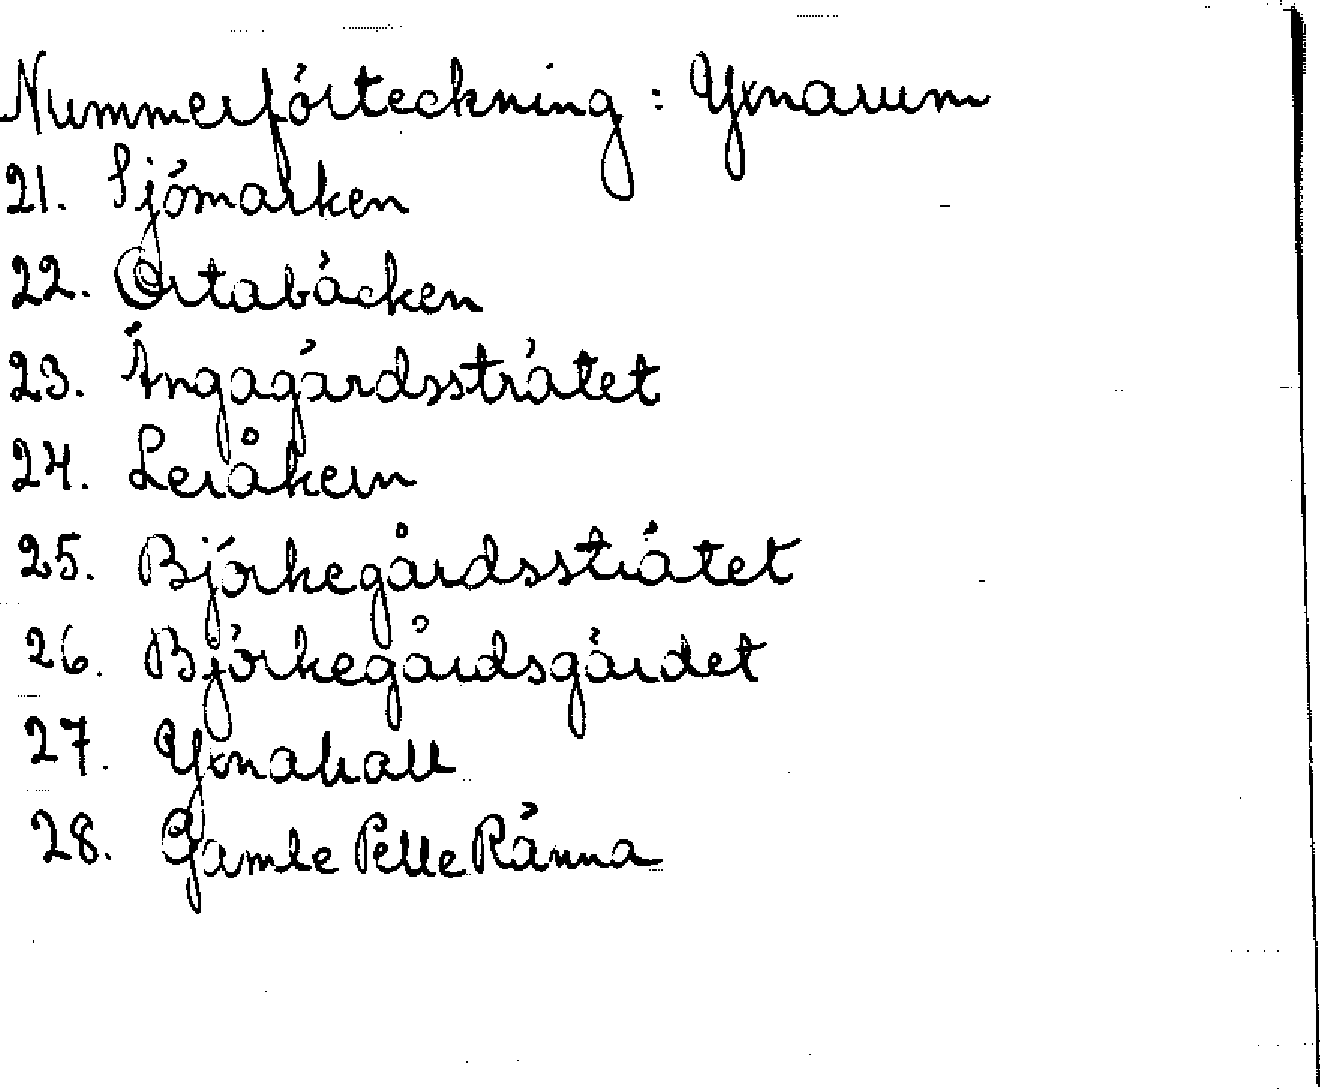 Nummerförteckning : Yxnarum
21. Sjömarken
22. Ortabäcken
23. Ängagärdsstråtet
24. Leråkern
25. Björkegårdsstråtet
26. Björkegårdsgärdet
27. Yxnahall
28. Gamle Pelle Ränna